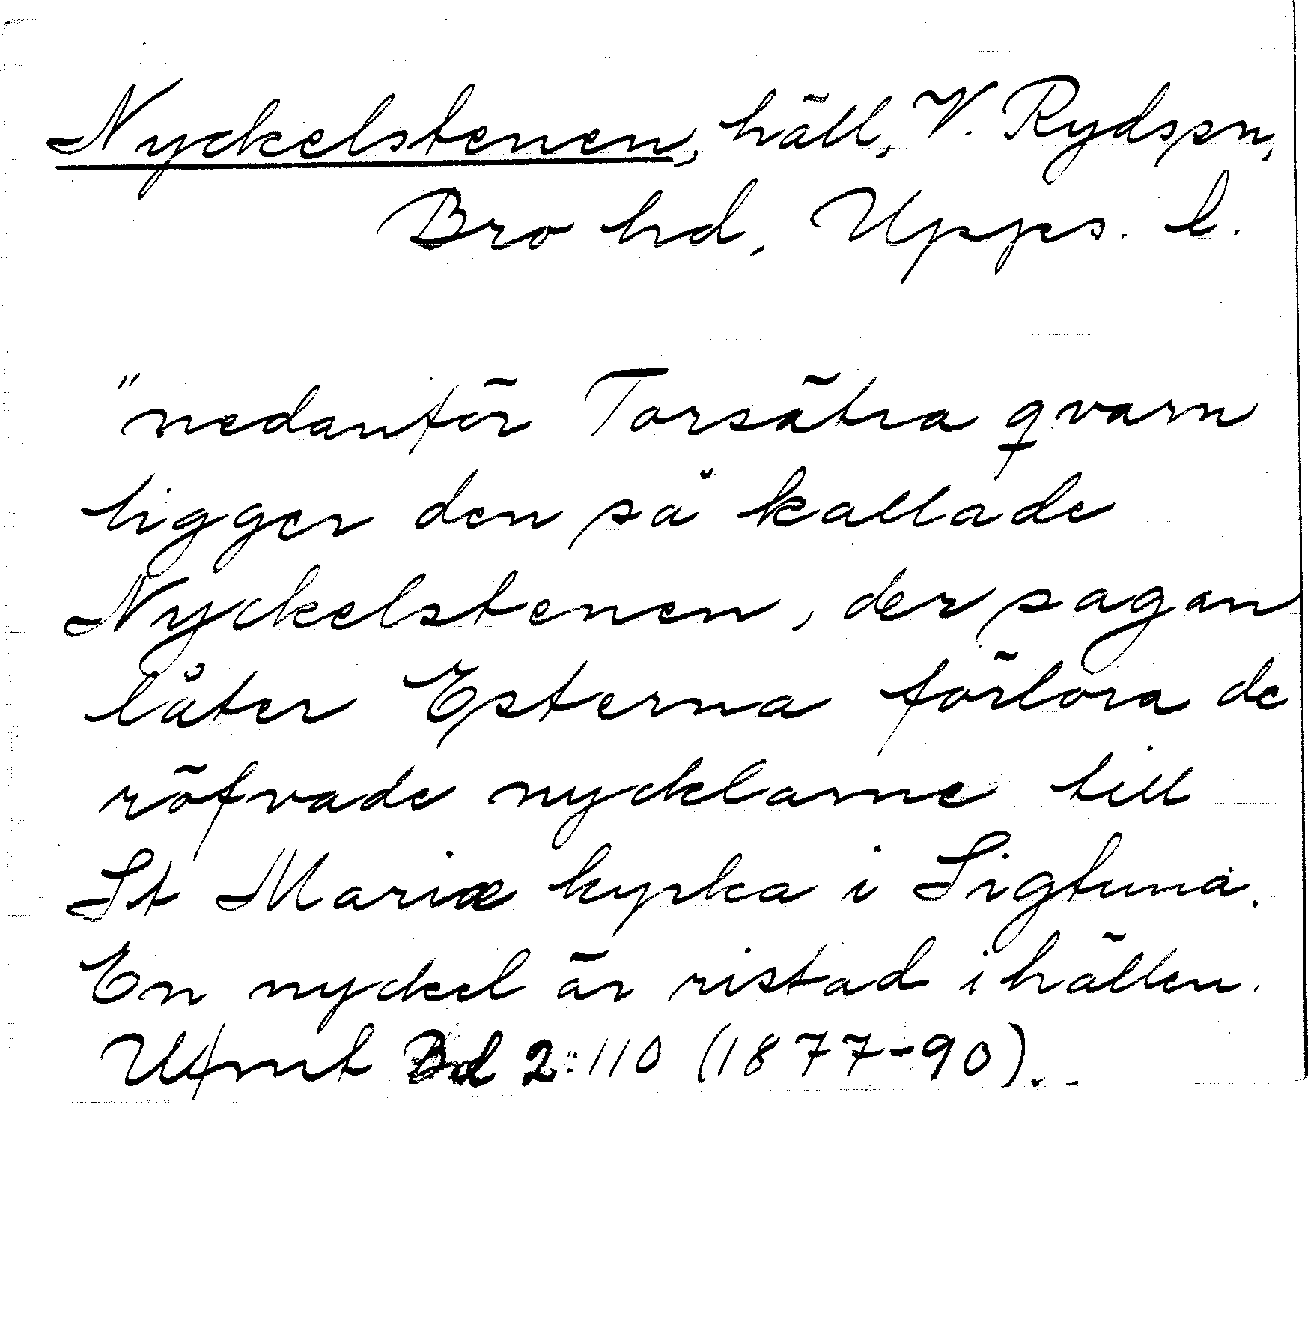 Nyckelstenen, häll, V. Rydspn,
Bro hd, Upps. l.
"nedanför Torsätra qvarn
ligger den så kallade
Nyckelstenen, der sagan
låter Esterna förlora de
röfvade nycklarne till
St Mariæ kyrka i Sigtuna.
En nyckel är ristad i hällen.
Ufmt Bd 2:110 (1877-90).